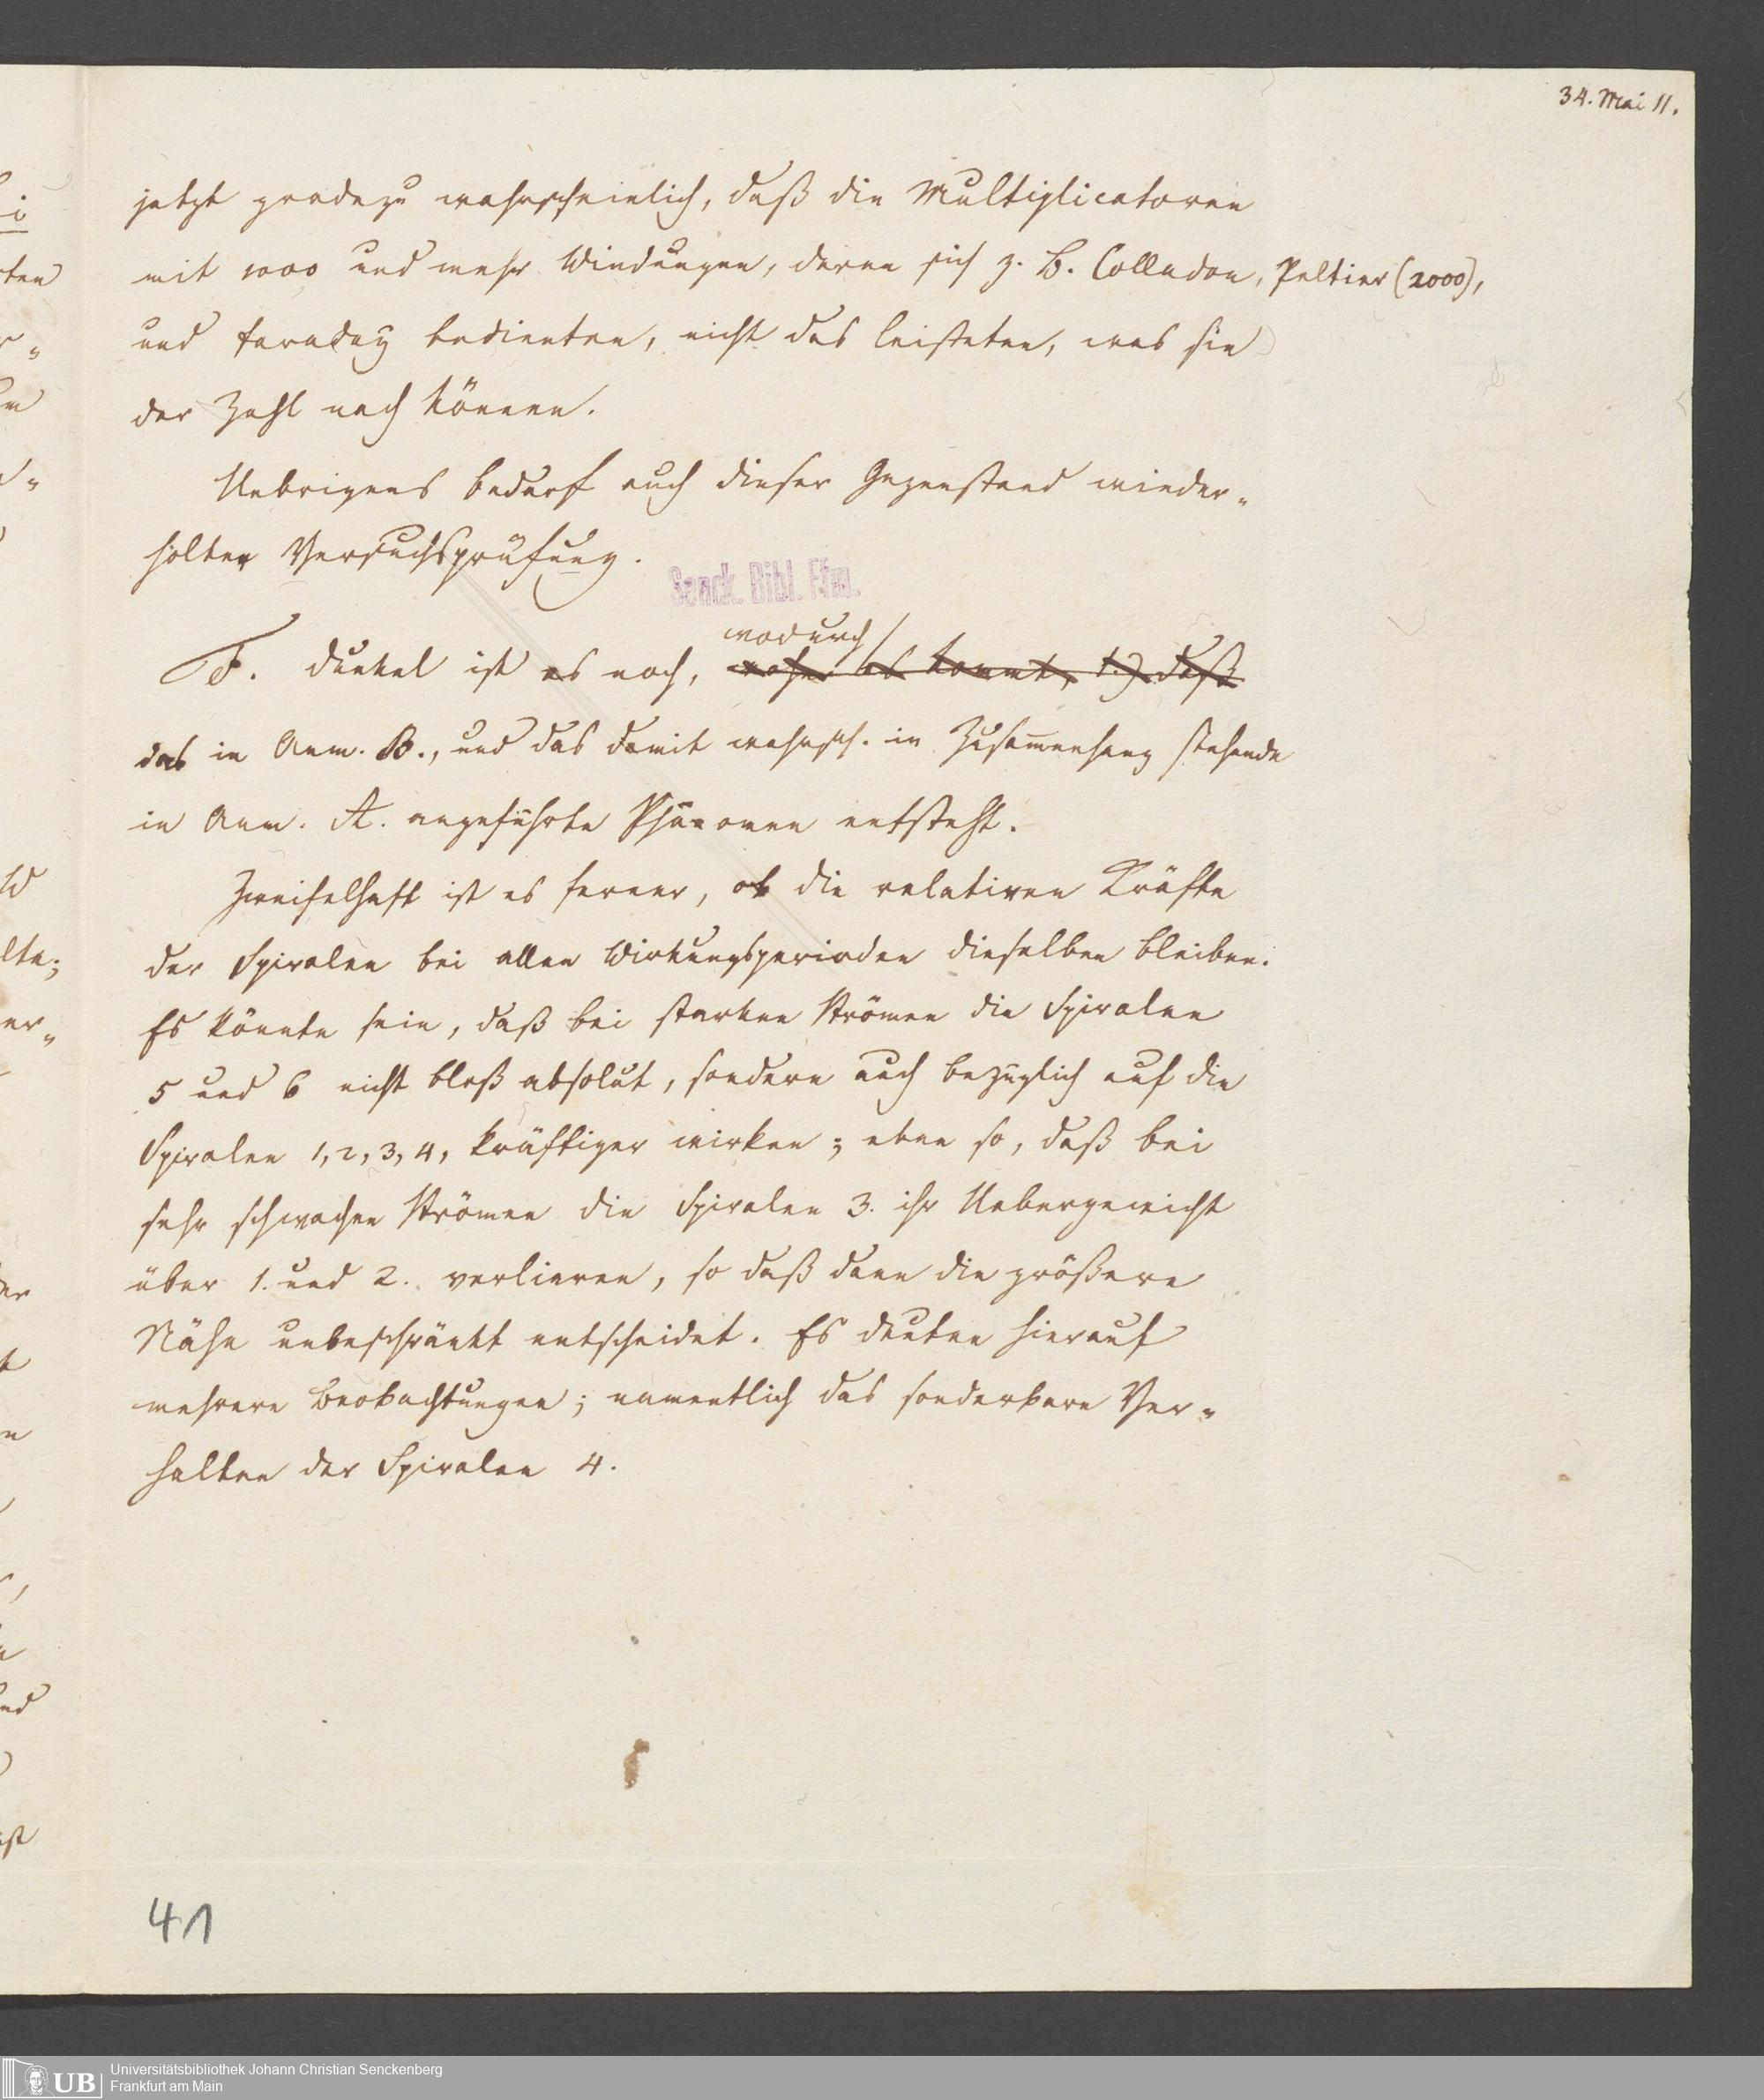 34. Mai 11.
jetzt gradezu wahrscheinlich, daß die Multiplicatoren
mit 1000 und mehr Windungen, deren sich z. B. Colladon, Peltier (2000),
und Faraday bedienten, nicht das leisteten, was sie
der Zahl nach können.
Uebrigens bedarf auch dieser Gegenstand wieder-
holter Versuchsprüfung.
Senck. Bibl. Ffm.
wodurch
F. Dunkel ist es noch, woher es kommt, 1.) daß
das in Anm. B., und das damit wahrsch. in Zusammenhang stehende
in Anm. A. angeführte Phänomen entsteht.
Zweifelhaft ist es ferner, ob die relativen Kräfte
der Spiralen bei allen Wirkungsperioden dieselben bleiben.
Es könnte sein, daß bei starken Strömen die Spiralen
5 und 6 nicht bloß absolut, sondern auch bezüglich auf die
Spiralen 1, 2, 3, 4, kräftiger wirken; eben so, daß bei
sehr schwachen Strömen die Spiralen 3. ihr Uebergewicht
über 1. und 2. verlieren, so daß dann die größere
Nähe unbeschränkt entscheidet. Es deuten hierauf
mehrere Beobachtungen; namentlich das sonderbare Ver-
halten der Spiralen 4.
41
UB
Universitätsbibliothek Johann Christian Senckenberg
Frankfurt am Main